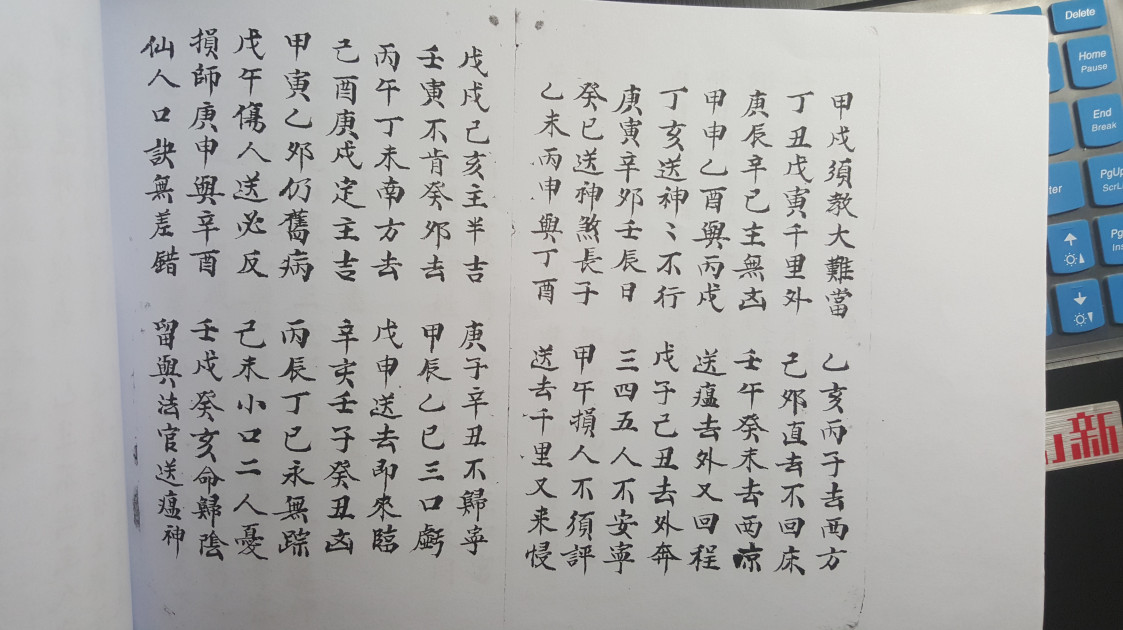 甲戌須教大難當　乙亥丙子去西方
丁丑戊寅千里外　己卯直去不回床
庚辰辛巳主無凶　壬午癸未去西凉
甲申乙酉與丙戌　送瘟去外又回程
丁亥送神〻不行　戊子己丑去外奔
庚寅辛卯壬辰日　三四五人不安寧
癸巳送神煞長子　甲午損人不須評
乙未丙申與丁酉　送去千里又来侵
戊戌己亥主半吉　庚子辛丑不歸寧
壬寅不肯癸卯去　甲辰乙巳三口虧
丙午丁未南方去　戊申送去即來臨
己酉庚戌定主吉　辛亥壬子癸丑凶
甲寅乙卯仍舊病　丙辰丁巳永無踪
戊午傷人送必反　己未小口二人憂
損師庚申與辛酉　壬戌癸亥命歸陰
仙人口訣無差錯　留與法官送瘟神
Delete
Home
Pause
End
Break
PgUp
ScrL
ter
Pg
In
新